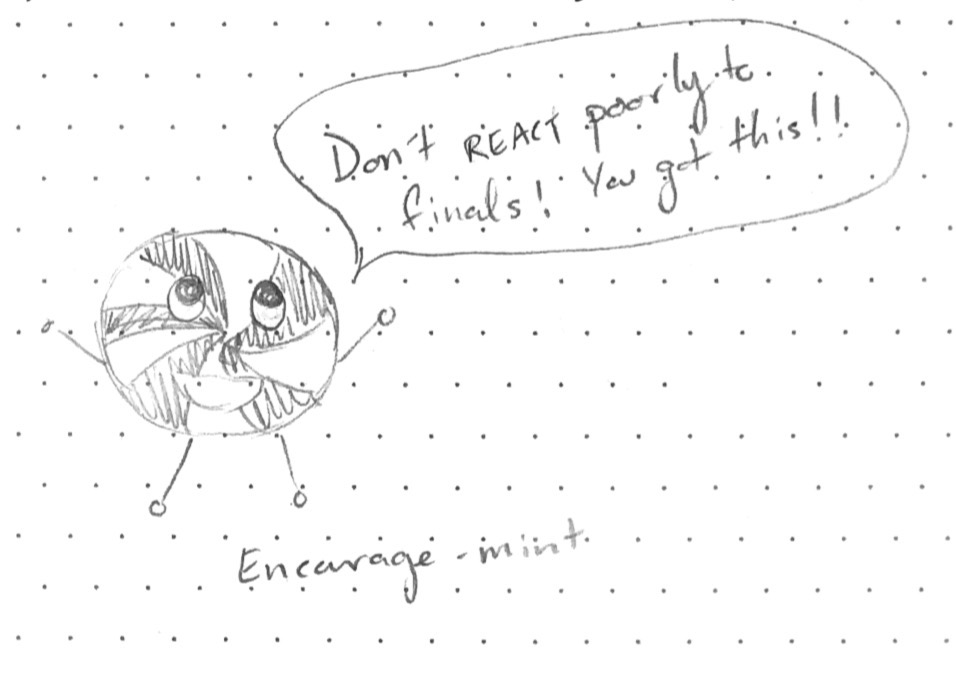 Don't REACT poorly to
finals! You got this!!
Encourage-mint